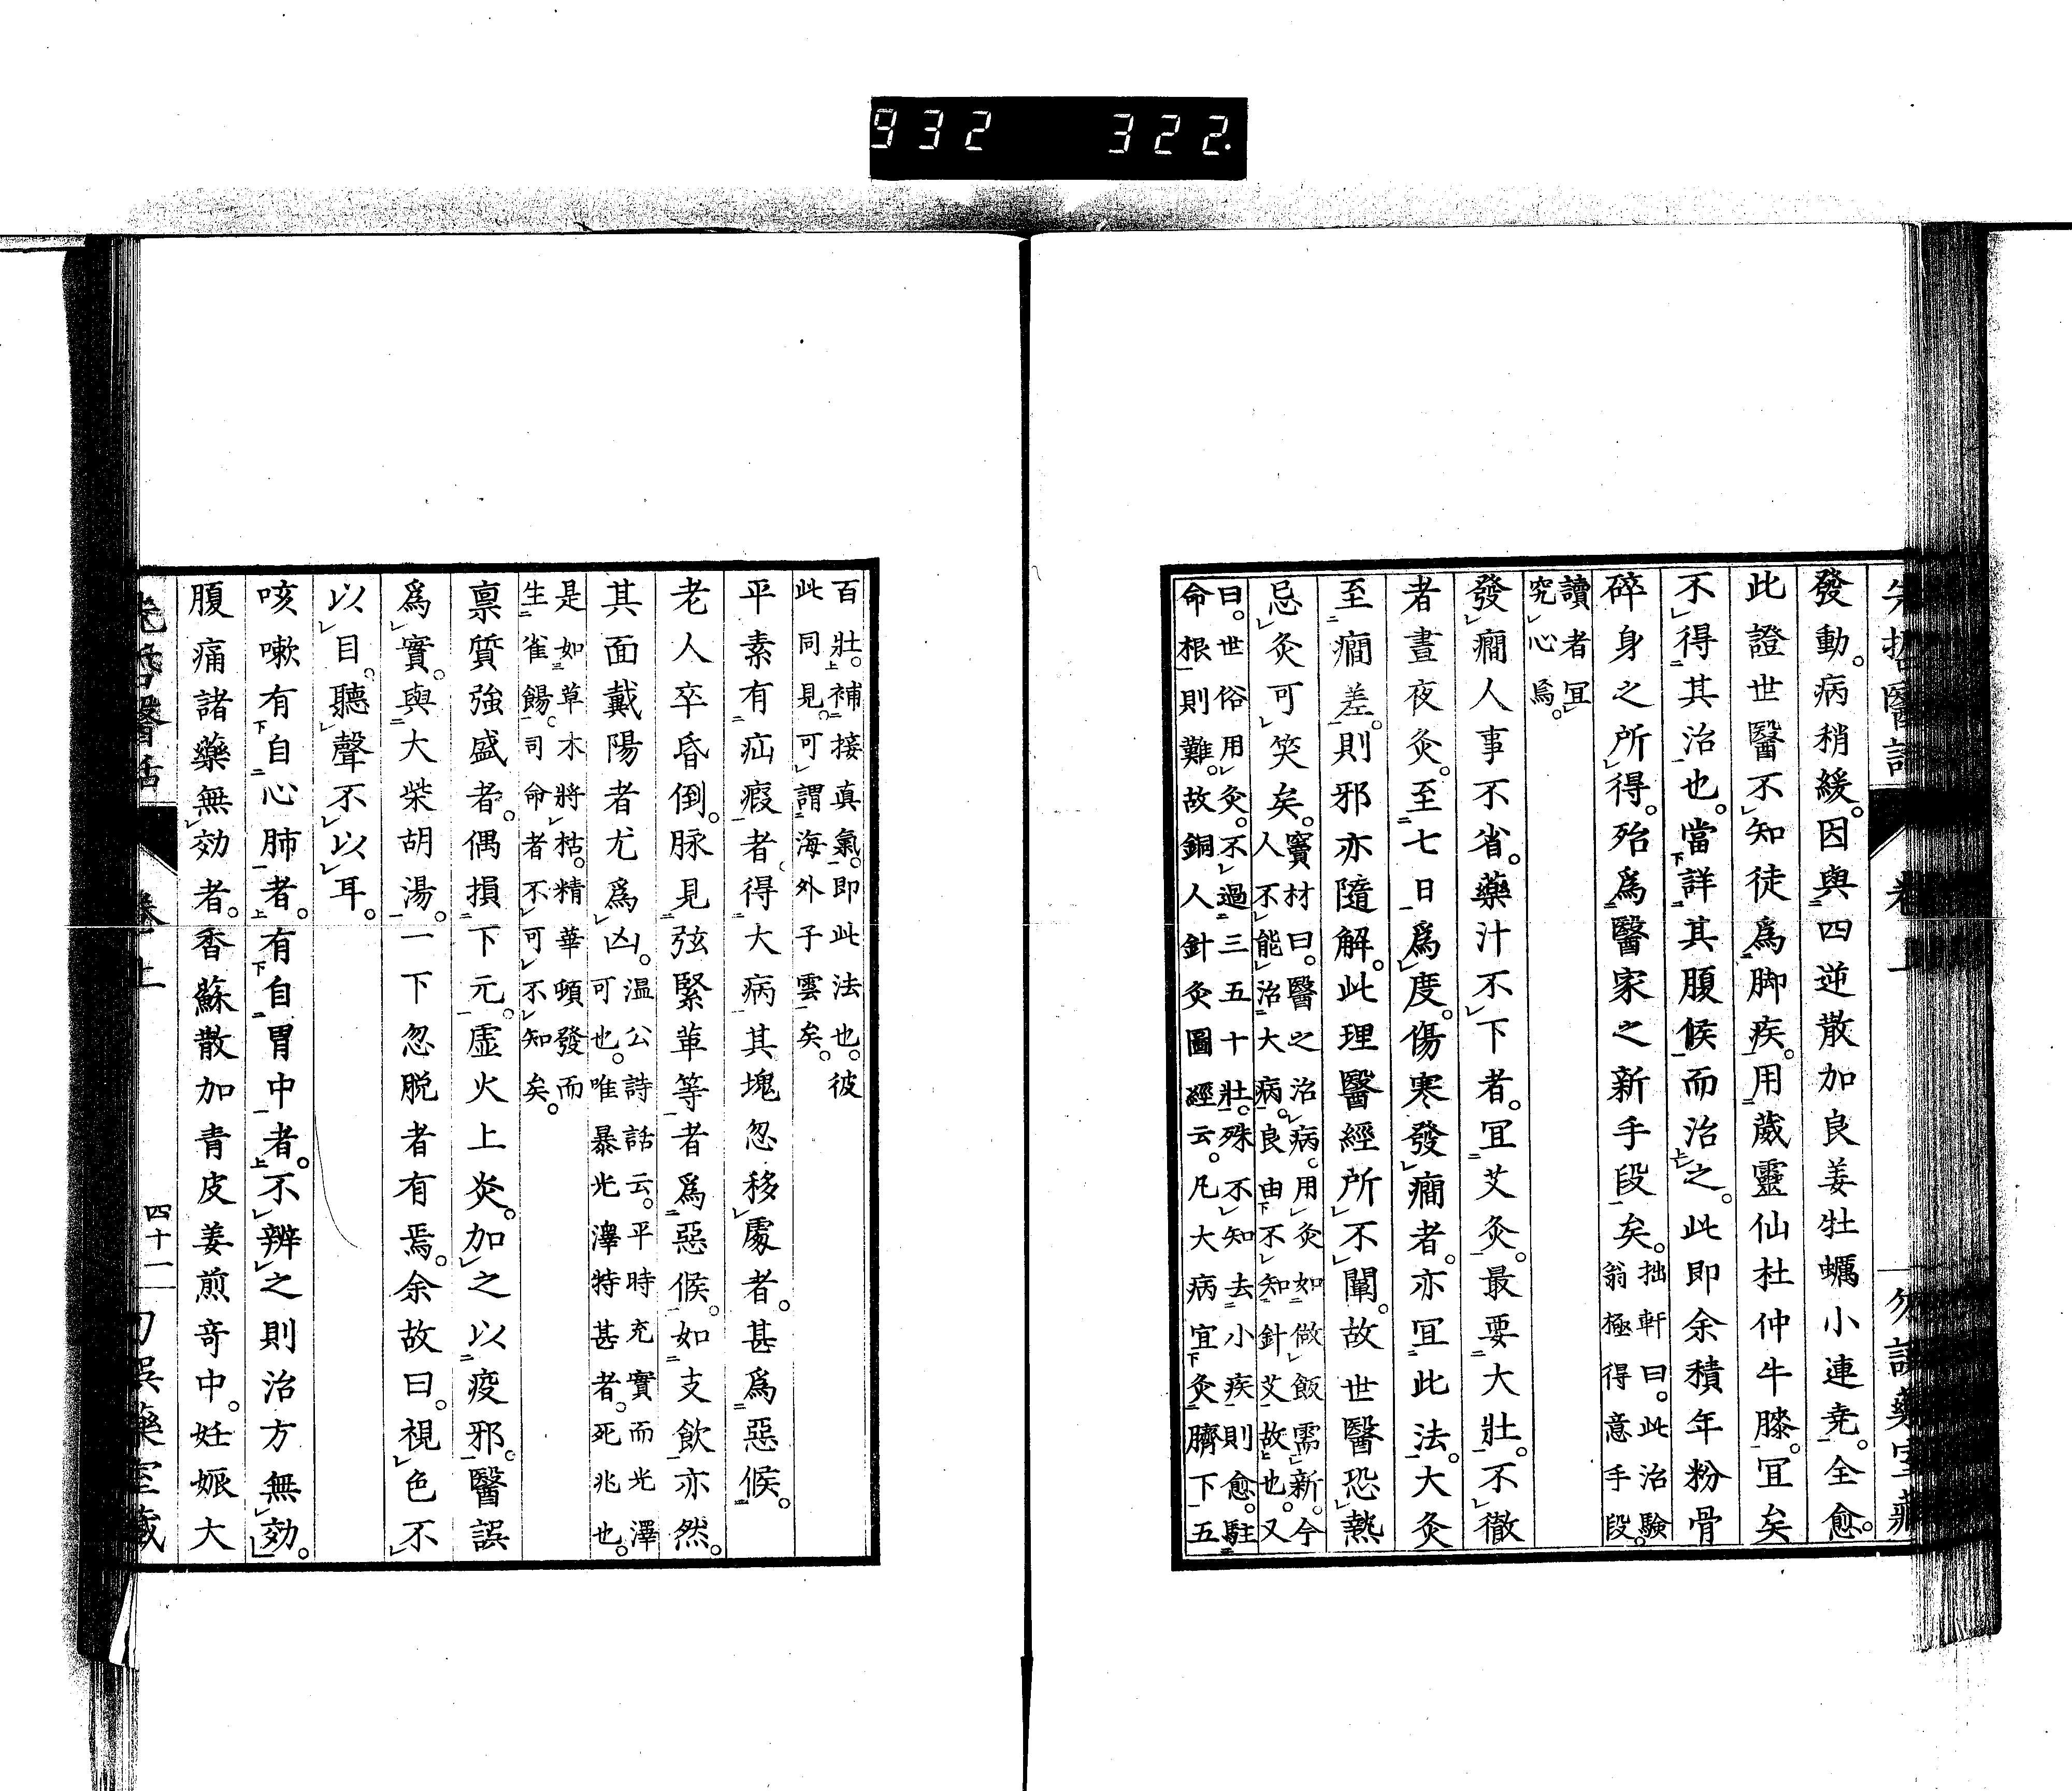 932 322.
先哲醫話 卷上 勿誤藥室藏
發動。病稍緩。因與四逆散加良姜牡蠣小連堯。全愈。
此證世醫不知徒爲脚疾。用葳靈仙杜仲牛膝。宜矣
不得其治也。當詳其腹候而治之。此即余積年粉骨
碎身之所得。殆爲醫家之新手段矣。拙軒曰。此治驗
翁極得意手段。
讀者宜
究心焉。
發癇人事不省。藥汁不下者。宜艾灸。最要大壯。不徹
者晝夜灸。至七日爲度。傷寒發癇者。亦宜此法。大灸
至癇差。則邪亦隨解。此理醫經所不闡。故世醫恐熱
忌灸可笑矣。竇材曰。醫之治病。用灸如做飯需新。今
人不能治大病。良由不知針艾故也。又
曰。世俗用灸。不過三五十壯。殊不知去小疾則愈。駐
命根則難。故銅人針灸圖經云。凡大病宜灸臍下五
百壯。補接真氣。即此法也。彼
此同見。可謂海外子雲矣。
平素有疝瘕者。得大病其塊忽移處者。甚爲惡候。
老人卒昏倒。脉見弦緊革等者爲惡候。如支飲亦然。
其面戴陽者尤爲凶。温公詩話云。平時充實而光澤
可也。唯暴光澤特甚者。死兆也。
是如草木將枯。精華頓發而
生雀餳。司命者不可不知矣。
稟質強盛者。偶損下元。虛火上炎。加之以疫邪。醫誤
爲實。與大柴胡湯。一下忽脫者有焉。余故曰。視色不
以目。聽聲不以耳。
咳嗽有自心肺者。有自胃中者。不辨之則治方無効。
腹痛諸藥無効者。香蘇散加青皮姜煎奇中。妊娠大
先哲醫話 卷上 四十一 勿誤藥室藏